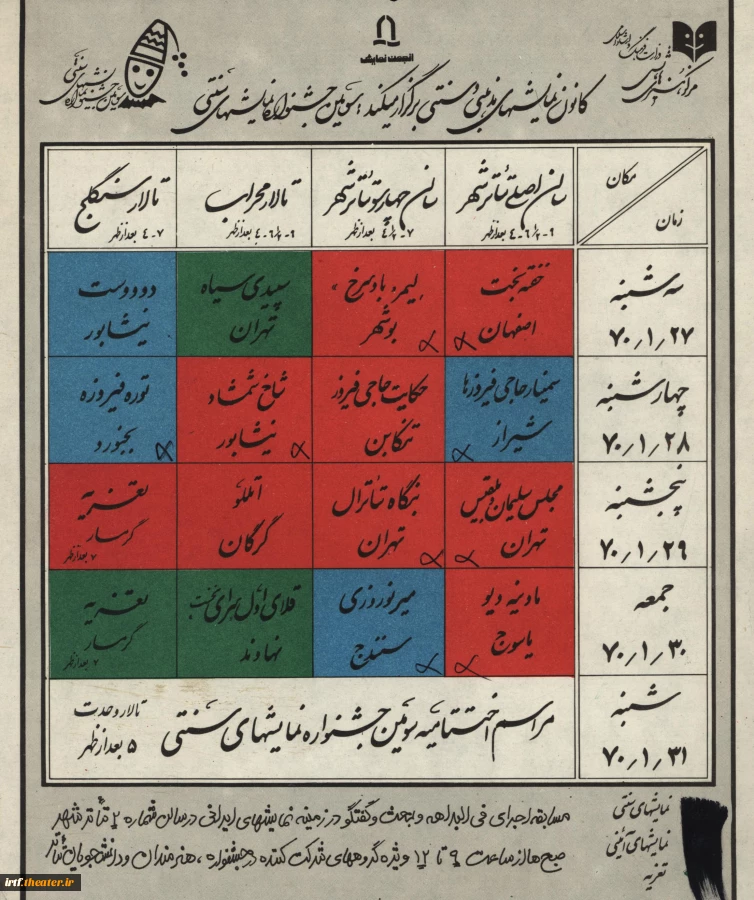 وزارت فرهنگ و ارشاد اسلامی
مرکز هنرهای نمایشی
انجمن نمایش
سومین جشنواره نمایشهای سنتی
کانون نمایشهای مذهبی و سنتی برگزار میکند: سومین جشنواره نمایشهای سنتی
مکان
زمان
سالن اصلی تئاتر شهر
سالن چهارسو تئاتر شهر
تالار محراب
تالار سنگلج
۷-۴ بعدازظهر
سه شنبه
۷۰/۱/۲۷
خفته بخت
اصفهان
«لیمر» باد سرخ
بوشهر
سپیدی سیاه
تهران
دو دوست
نیشابور
چهارشنبه
۷۰/۱/۲۸
سمینار حاجی فیروزها
شیراز
حکایت حاجی فیروز
تنکابن
شاخ شمشاد
نیشابور
توره فیروزه
بجنورد
پنجشنبه
۷۰/۱/۲۹
مجلس سلیمان و بلقیس
تهران
بنگاه تئاترال
تهران
اتللو
گرگان
تعزیه
گرمسار
۷ بعدازظهر
جمعه
۷۰/۱/۳۰
مادینه دیو
یاسوج
میرنوروزی
سنندج
نهاوند
تعزیه
گرمسار
۷ بعدازظهر
شنبه
۷۰/۱/۳۱
مراسم اختتامیه سومین جشنواره نمایشهای سنتی
تالار وحدت
۵ بعدازظهر
نمایشهای سنتی
نمایشهای آئینی
تعزیه
مسابقه اجرای فی البداهه و بحث و گفتگو در زمینه نمایشهای ایرانی در سالن شماره ۲ تئاتر شهر
صبح ها از ساعت ۹ تا ۱۲ ویژه گروههای شرکت کننده در جشنواره، هنرمندان و دانشجویان تئاتر
irtf.theater.ir